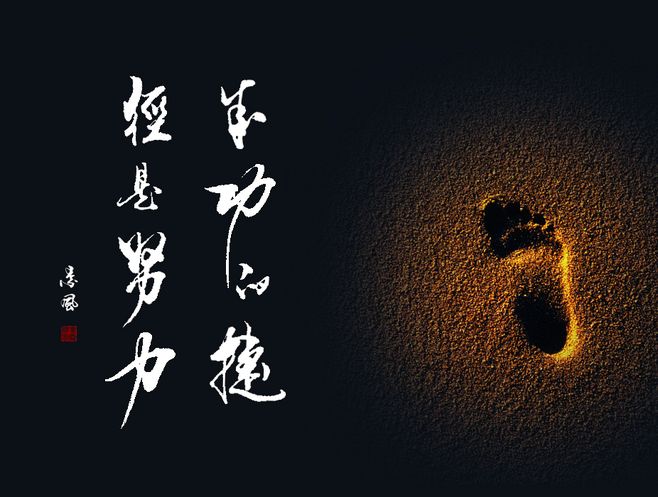 成功的捷
徑是努力